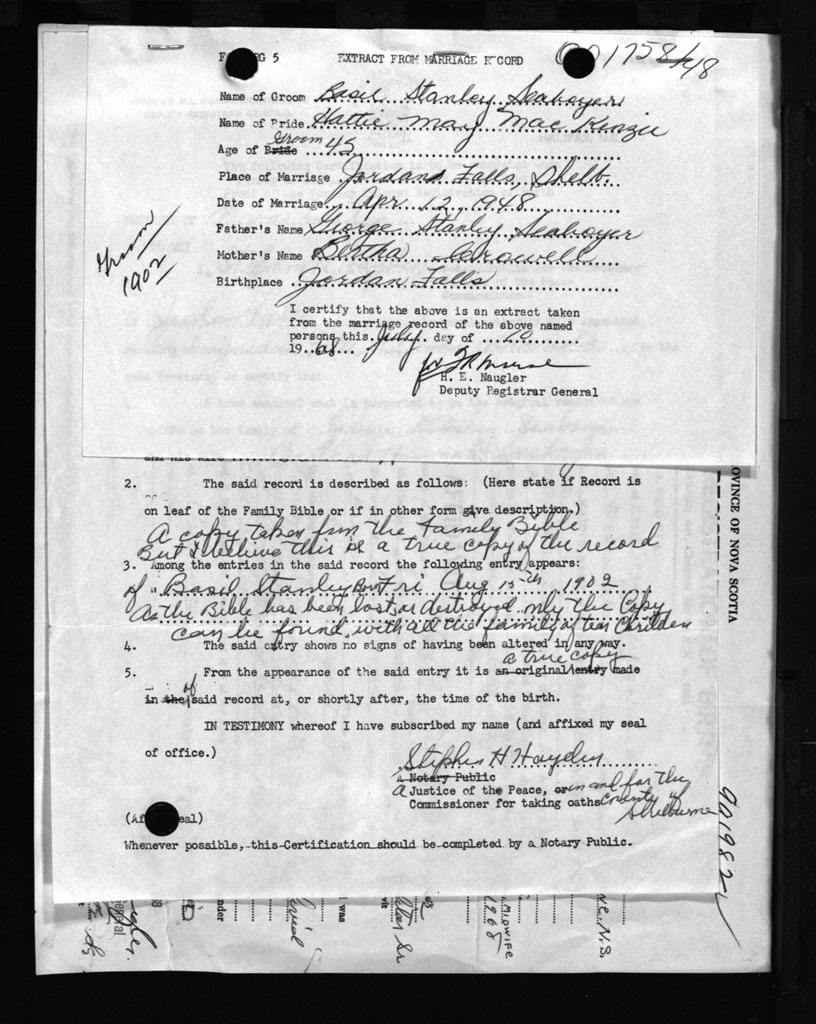 5 EXTRACT FROM MARRIAGE RECORD 001758/48
Name of Groom Basil Stanley Seaboyer
Name of Bride Hattie May MacKenzie
Groom
Age of Bride 45
Place of Marriage Jordan Falls, Shelb.
Date of Marriage Apr. 12, 1948
Father's Name George Stanley Seaboyer
Mother's Name Bertha Crowell
Birthplace Jordan Falls
Groom
1902
I certify that the above is an extract taken
from the marriage record of the above named
persons this July day of
1968
for
H. E. Naugler
Deputy Registrar General
and his wife
2. The said record is described as follows: (Here state if Record is
on leaf of the Family Bible or if in other form give description.)
A copy taken from the Family Bible
But I believe this is a true copy of the record
3. Among the entries in the said record the following entry appears:
of Basil Stanley Born Fri Aug 15th 1902
As the Bible has been lost or destroyed only the Copy
can be found, with all the family of ten Children
4. The said entry shows no signs of having been altered in any way.
a true copy
5. From the appearance of the said entry it is an original entry made
of
in the said record at, or shortly after, the time of the birth.
IN TESTIMONY whereof I have subscribed my name (and affixed my seal
of office.)
Stephen H Hayden
A Notary Public
A Justice of the Peace, or in and for the
Commissioner for taking oaths County of
Shelburne
Whenever possible, this Certification should be completed by a Notary Public.
OVINCE OF NOVA SCOTIA
901982
nder
I was
wit
MIDWIFE
1968
N.S. N.B.